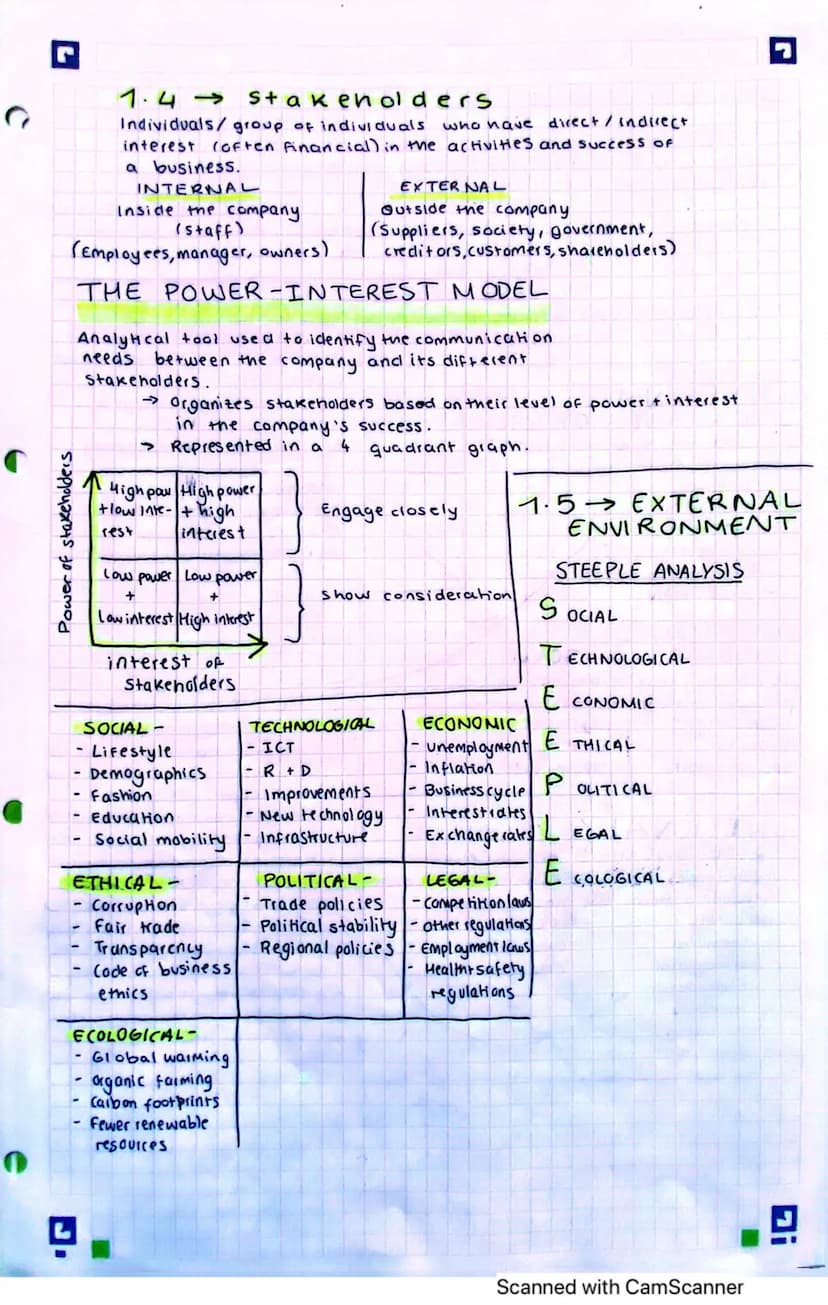 1.4 → Stakeholders
Individuals/group of individuals who have direct/indirect
interest (often financial) in the activities and success of
a business.
INTERNAL
Inside the company
(staff)
(Employees, manager, owners)
EXTERNAL
Outside the company
(Suppliers, society, government,
creditors, customers, shareholders)
THE POWER-INTEREST MODEL
Analytical tool used to identify the communication
needs between the company and its different
stakeholders.
→ Organizes stakeholders based on their level of power + interest
in the company's success.
→ Represented in a 4 quadrant graph.
Power of stakeholders
High pow
+ low inte-
rest
High power
+ high
interest
Engage closely
Low power
+
Low interest
Low power
+
High interest
Show consideration
interest of
stakeholders
1.5 → EXTERNAL
ENVIRONMENT
STEEPLE ANALYSIS
SOCIAL
TECHNOLOGICAL
ECONOMIC
ETHICAL
POLITICAL
LEGAL
ECOLOGICAL
SOCIAL -
- Lifestyle
- Demographics
- Fashion
- Education
- Social mobility
TECHNOLOGICAL
- ICT
- R + D
- Improvements
- New technology
- Infrastructure
ECONOMIC
- Unemployment
- Inflation
- Business cycle
- Interest rates
- Exchange rates
ETHICAL -
- Corruption
- Fair trade
- Transparency
- Code of business
ethics
POLITICAL -
- Trade policies
- Political stability
- Regional policies
LEGAL -
- Competition laws
- Other regulations
- Employment laws
- Health + safety
regulations
ECOLOGICAL -
- Global warming
- Organic farming
- Carbon footprints
- Fewer renewable
resources
Scanned with CamScanner